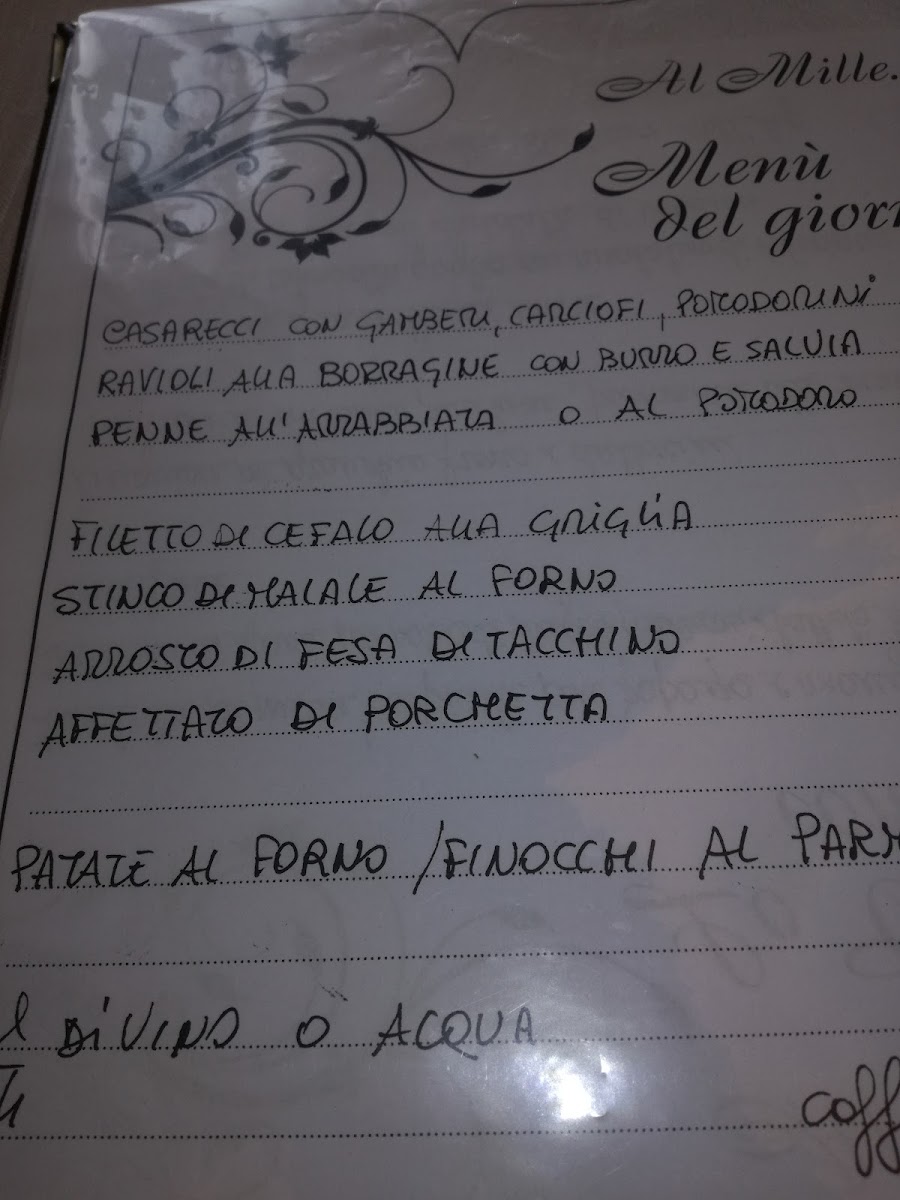 Al Mille.
Menù
del gior
CASARECCI CON GAMBERI, CARCIOFI, POMODORINI
RAVIOLI ALLA BORRAGINE CON BURRO E SALVIA
PENNE ALL'ARRABBIATA O AL POMODORO
FILETTO DI CEFALO ALLA GRIGLIA
STINCO DI MAIALE AL FORNO
ARROSTO DI FESA DI TACCHINO
AFFETTATO DI PORCHETTA
PATATE AL FORNO / FINOCCHI AL PARM
l DI VINO O ACQUA
coff